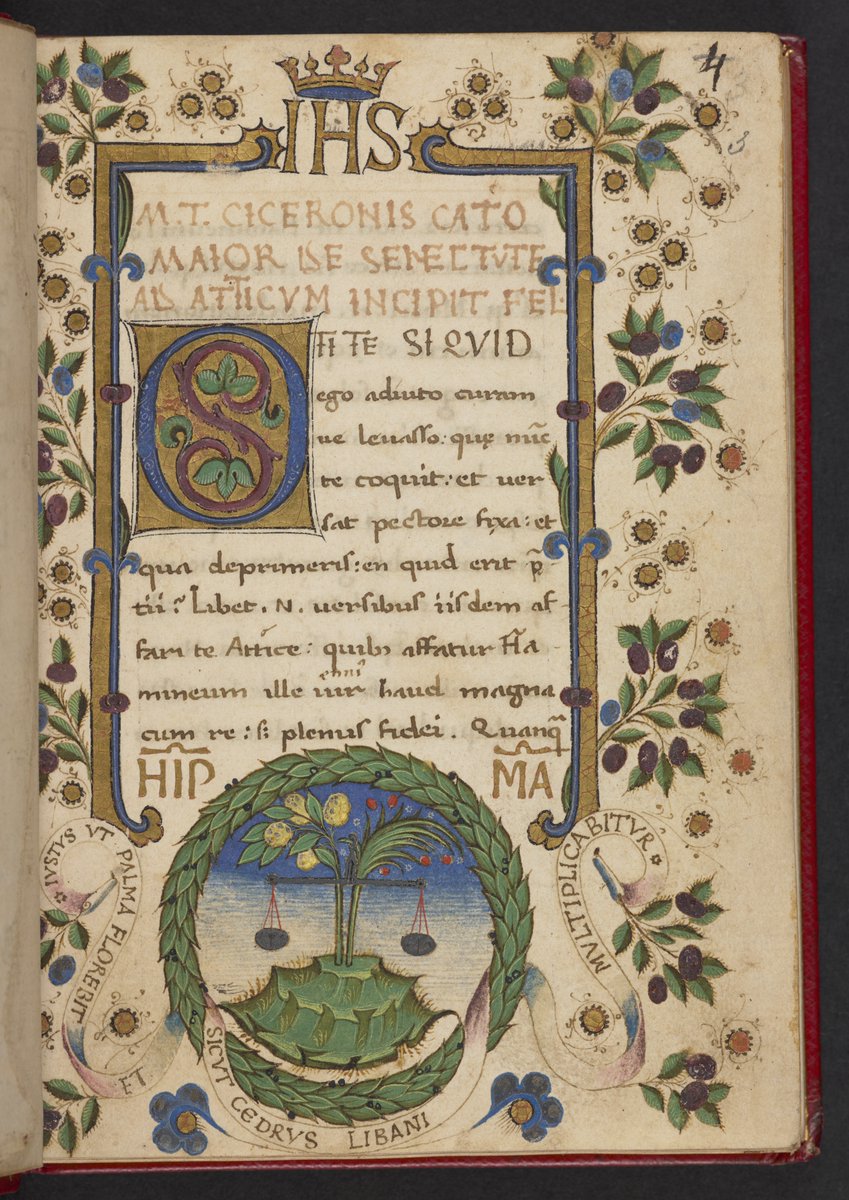 4
3
IHS
M. T. CICERONIS CATO
MAIOR DE SENECTVTE
AD ATTICVM INCIPIT FEL
O TITE SI QVID
ego adiuto curam
ue leuasso: quę nūc
te coquit: et uer
sat pectore fixa: et
qua deprimeris: en quid erit p̄
tii? Libet. N. uersibus iisdem af-
fari te Attice: quibꝫ affatur Fla
enni
mineum ille uir haud magna
cum re: sꝫ plenus fidei. Quanq̄
HIP MA
IVSTVS VT PALMA FLOREBIT
ET
SICVT CEDRVS LIBANI
MVLTIPLICABITVR